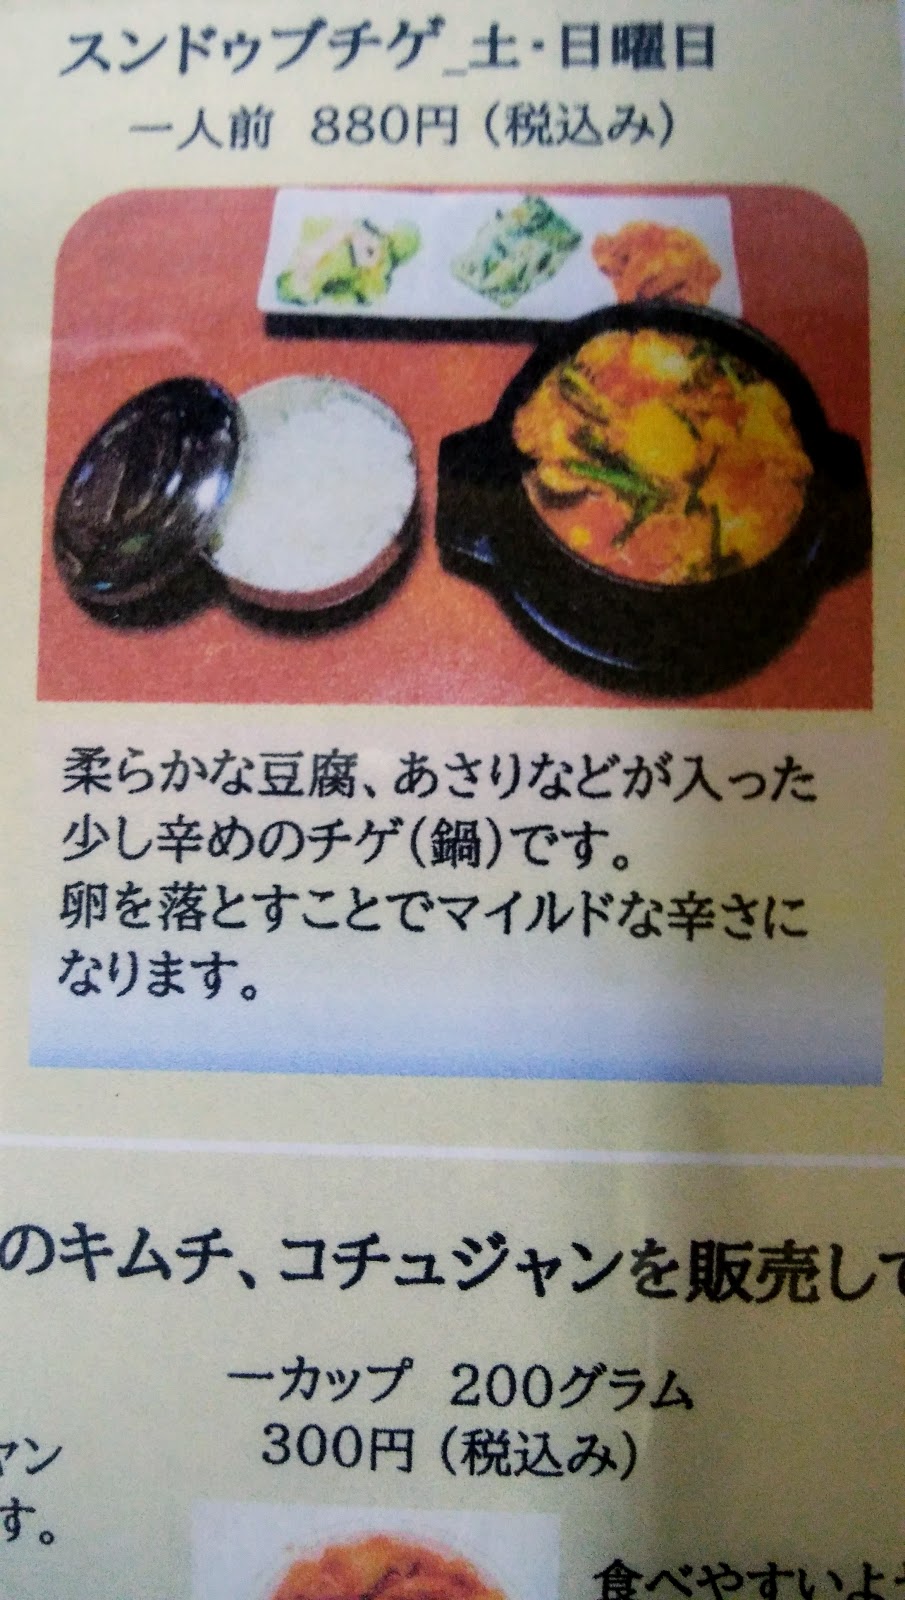 スンドゥブチゲ_土・日曜日
一人前 880円（税込み）
柔らかな豆腐、あさりなどが入った
少し辛めのチゲ（鍋）です。
卵を落とすことでマイルドな辛さに
なります。
のキムチ、コチュジャンを販売して
一カップ 200グラム
300円（税込み）
ャン
す。
食べやすいよ